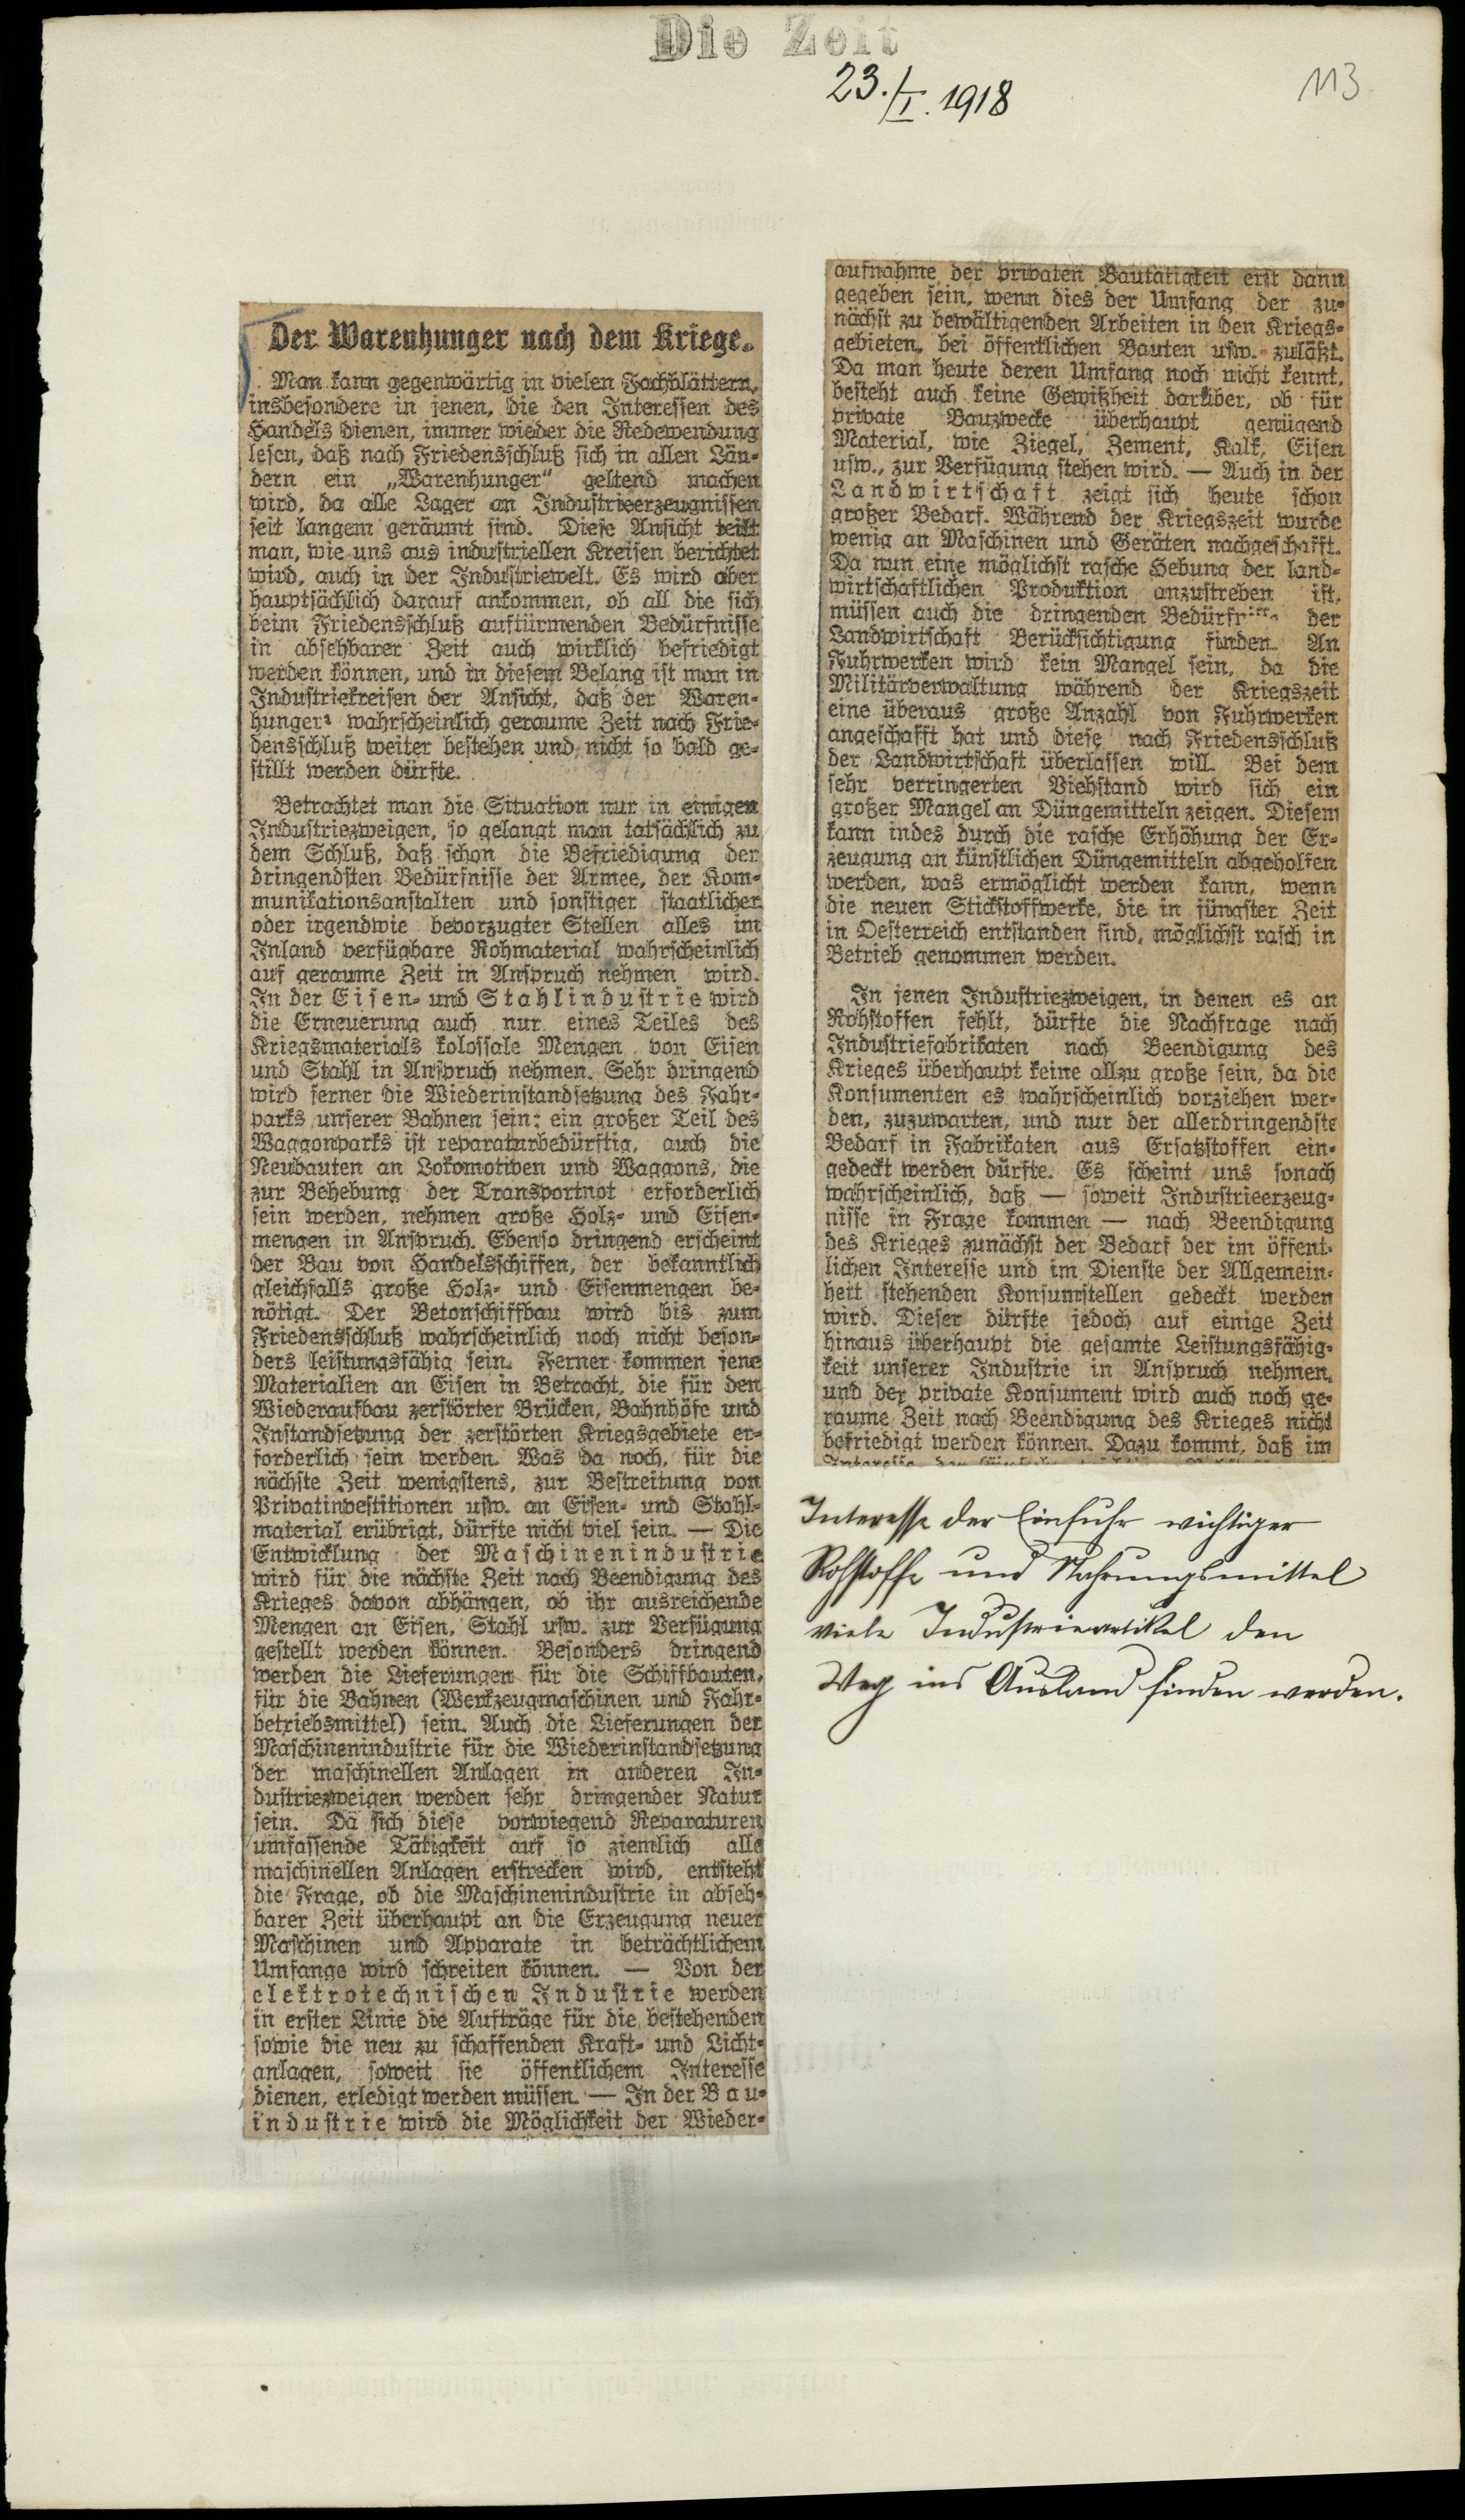 Die Zeit
23./I. 1918
113
Der Warenhunger nach dem Kriege.
Man kann gegenwärtig in vielen Fachblättern,
insbesondere in jenen, die den Interessen des
Handels dienen, immer wieder die Redewendung
lesen, daß nach Friedensschluß sich in allen Län-
dern ein „Warenhunger“ geltend machen
wird, da alle Lager an Industrieerzeugnissen
seit langem geräumt sind. Diese Ansicht teilt
man, wie uns aus industriellen Kreisen berichtet
wird, auch in der Industriewelt. Es wird aber
hauptsächlich darauf ankommen, ob all die sich
beim Friedensschluß auftürmenden Bedürfnisse
in absehbarer Zeit auch wirklich befriedigt
werden können, und in diesem Belang ist man in
Industriekreisen der Ansicht, daß der Waren-
hunger wahrscheinlich geraume Zeit nach Frie-
densschluß weiter bestehen und nicht so bald ge-
stillt werden dürfte.
Betrachtet man die Situation nur in einigen
Industriezweigen, so gelangt man tatsächlich zu
dem Schluß, daß schon die Befriedigung der
dringendsten Bedürfnisse der Armee, der Kom-
munikationsanstalten und sonstiger staatlicher
oder irgendwie bevorzugter Stellen alles im
Inland verfügbare Rohmaterial wahrscheinlich
auf geraume Zeit in Anspruch nehmen wird.
In der Eisen- und Stahlindustrie wird
die Erneuerung auch nur eines Teiles des
Kriegsmaterials kolossale Mengen von Eisen
und Stahl in Anspruch nehmen. Sehr dringend
wird ferner die Wiederinstandsetzung des Fahr-
parks unserer Bahnen sein; ein großer Teil des
Waggonparks ist reparaturbedürftig, auch die
Neubauten an Lokomotiven und Waggons, die
zur Behebung der Transportnot erforderlich
sein werden, nehmen große Holz- und Eisen-
mengen in Anspruch. Ebenso dringend erscheint
der Bau von Handelsschiffen, der bekanntlich
gleichfalls große Holz- und Eisenmengen be-
nötigt. Der Betonschiffbau wird bis zum
Friedensschluß wahrscheinlich noch nicht beson-
ders leistungsfähig sein. Ferner kommen jene
Materialien an Eisen in Betracht, die für den
Wiederaufbau zerstörter Brücken, Bahnhöfe und
Instandsetzung der zerstörten Kriegsgebiete er-
forderlich sein werden. Was da noch, für die
nächste Zeit wenigstens, zur Bestreitung von
Privatinvestitionen usw. an Eisen- und Stahl-
material erübrigt, dürfte nicht viel sein. — Die
Entwicklung der Maschinenindustrie
wird für die nächste Zeit nach Beendigung des
Krieges davon abhängen, ob ihr ausreichende
Mengen an Eisen, Stahl usw. zur Verfügung
gestellt werden können. Besonders dringend
werden die Lieferungen für die Schiffbauten,
für die Bahnen (Werkzeugmaschinen und Fahr-
betriebsmittel) sein. Auch die Lieferungen der
Maschinenindustrie für die Wiederinstandsetzung
der maschinellen Anlagen in anderen In-
dustriezweigen werden sehr dringender Natur
sein. Da sich diese vorwiegend Reparaturen
umfassende Tätigkeit auf so ziemlich alle
maschinellen Anlagen erstrecken wird, entsteht
die Frage, ob die Maschinenindustrie in abseh-
barer Zeit überhaupt an die Erzeugung neuer
Maschinen und Apparate in beträchtlichem
Umfange wird schreiten können. — Von der
elektrotechnischen Industrie werden
in erster Linie die Aufträge für die bestehenden
sowie die neu zu schaffenden Kraft- und Licht-
anlagen, soweit sie öffentlichem Interesse
dienen, erledigt werden müssen. — In der Bau-
industrie wird die Möglichkeit der Wieder-
aufnahme der privaten Bautätigkeit erst dann
gegeben sein, wenn dies der Umfang der zu-
nächst zu bewältigenden Arbeiten in den Kriegs-
gebieten, bei öffentlichen Bauten usw. zuläßt.
Da man heute deren Umfang noch nicht kennt,
besteht auch keine Gewißheit darüber, ob für
private Bauzwecke überhaupt genügend
Material, wie Ziegel, Zement, Kalk, Eisen
usw., zur Verfügung stehen wird. — Auch in der
Landwirtschaft zeigt sich heute schon
großer Bedarf. Während der Kriegszeit wurde
wenig an Maschinen und Geräten nachgeschafft.
Da nun eine möglichst rasche Hebung der land-
wirtschaftlichen Produktion anzustreben ist,
müssen auch die dringenden der
Landwirtschaft Berücksichtigung finden. An
Fuhrwerken wird kein Mangel sein, da die
Militärverwaltung während der Kriegszeit
eine überaus große Anzahl von Fuhrwerken
angeschafft hat und diese nach Friedensschluß
der Landwirtschaft überlassen will. Bei dem
sehr verringerten Viehstand wird sich ein
großer Mangel an Düngemitteln zeigen. Diesem
kann indes durch die rasche Erhöhung der Er-
zeugung an künstlichen Düngemitteln abgeholfen
werden, was ermöglicht werden kann, wenn
die neuen Stickstoffwerke, die in jüngster Zeit
in Oesterreich entstanden sind, möglichst rasch in
Betrieb genommen werden.
In jenen Industriezweigen, in denen es an
Rohstoffen fehlt, dürfte die Nachfrage nach
Industriefabrikaten nach Beendigung des
Krieges überhaupt keine allzu große sein, da die
Konsumenten es wahrscheinlich vorziehen wer-
den, zuzuwarten, und nur der allerdringendste
Bedarf in Fabrikaten aus Ersatzstoffen ein-
gedeckt werden dürfte. Es scheint uns sonach
wahrscheinlich, daß — soweit Industrieerzeug-
nisse in Frage kommen — nach Beendigung
des Krieges zunächst der Bedarf der im öffent-
lichen Interesse und im Dienste der Allgemein-
heit stehenden Konsumstellen gedeckt werden
wird. Dieser dürfte jedoch auf einige Zeit
hinaus überhaupt die gesamte Leistungsfähig-
keit unserer Industrie in Anspruch nehmen,
und der private Konsument wird auch noch ge-
raume Zeit nach Beendigung des Krieges nicht
befriedigt werden können. Dazu kommt, daß im
Interesse der Einfuhr wichtiger
Rohstoffe und Nahrungsmittel
viele Industrieartikel den
Weg ins Ausland finden werden.